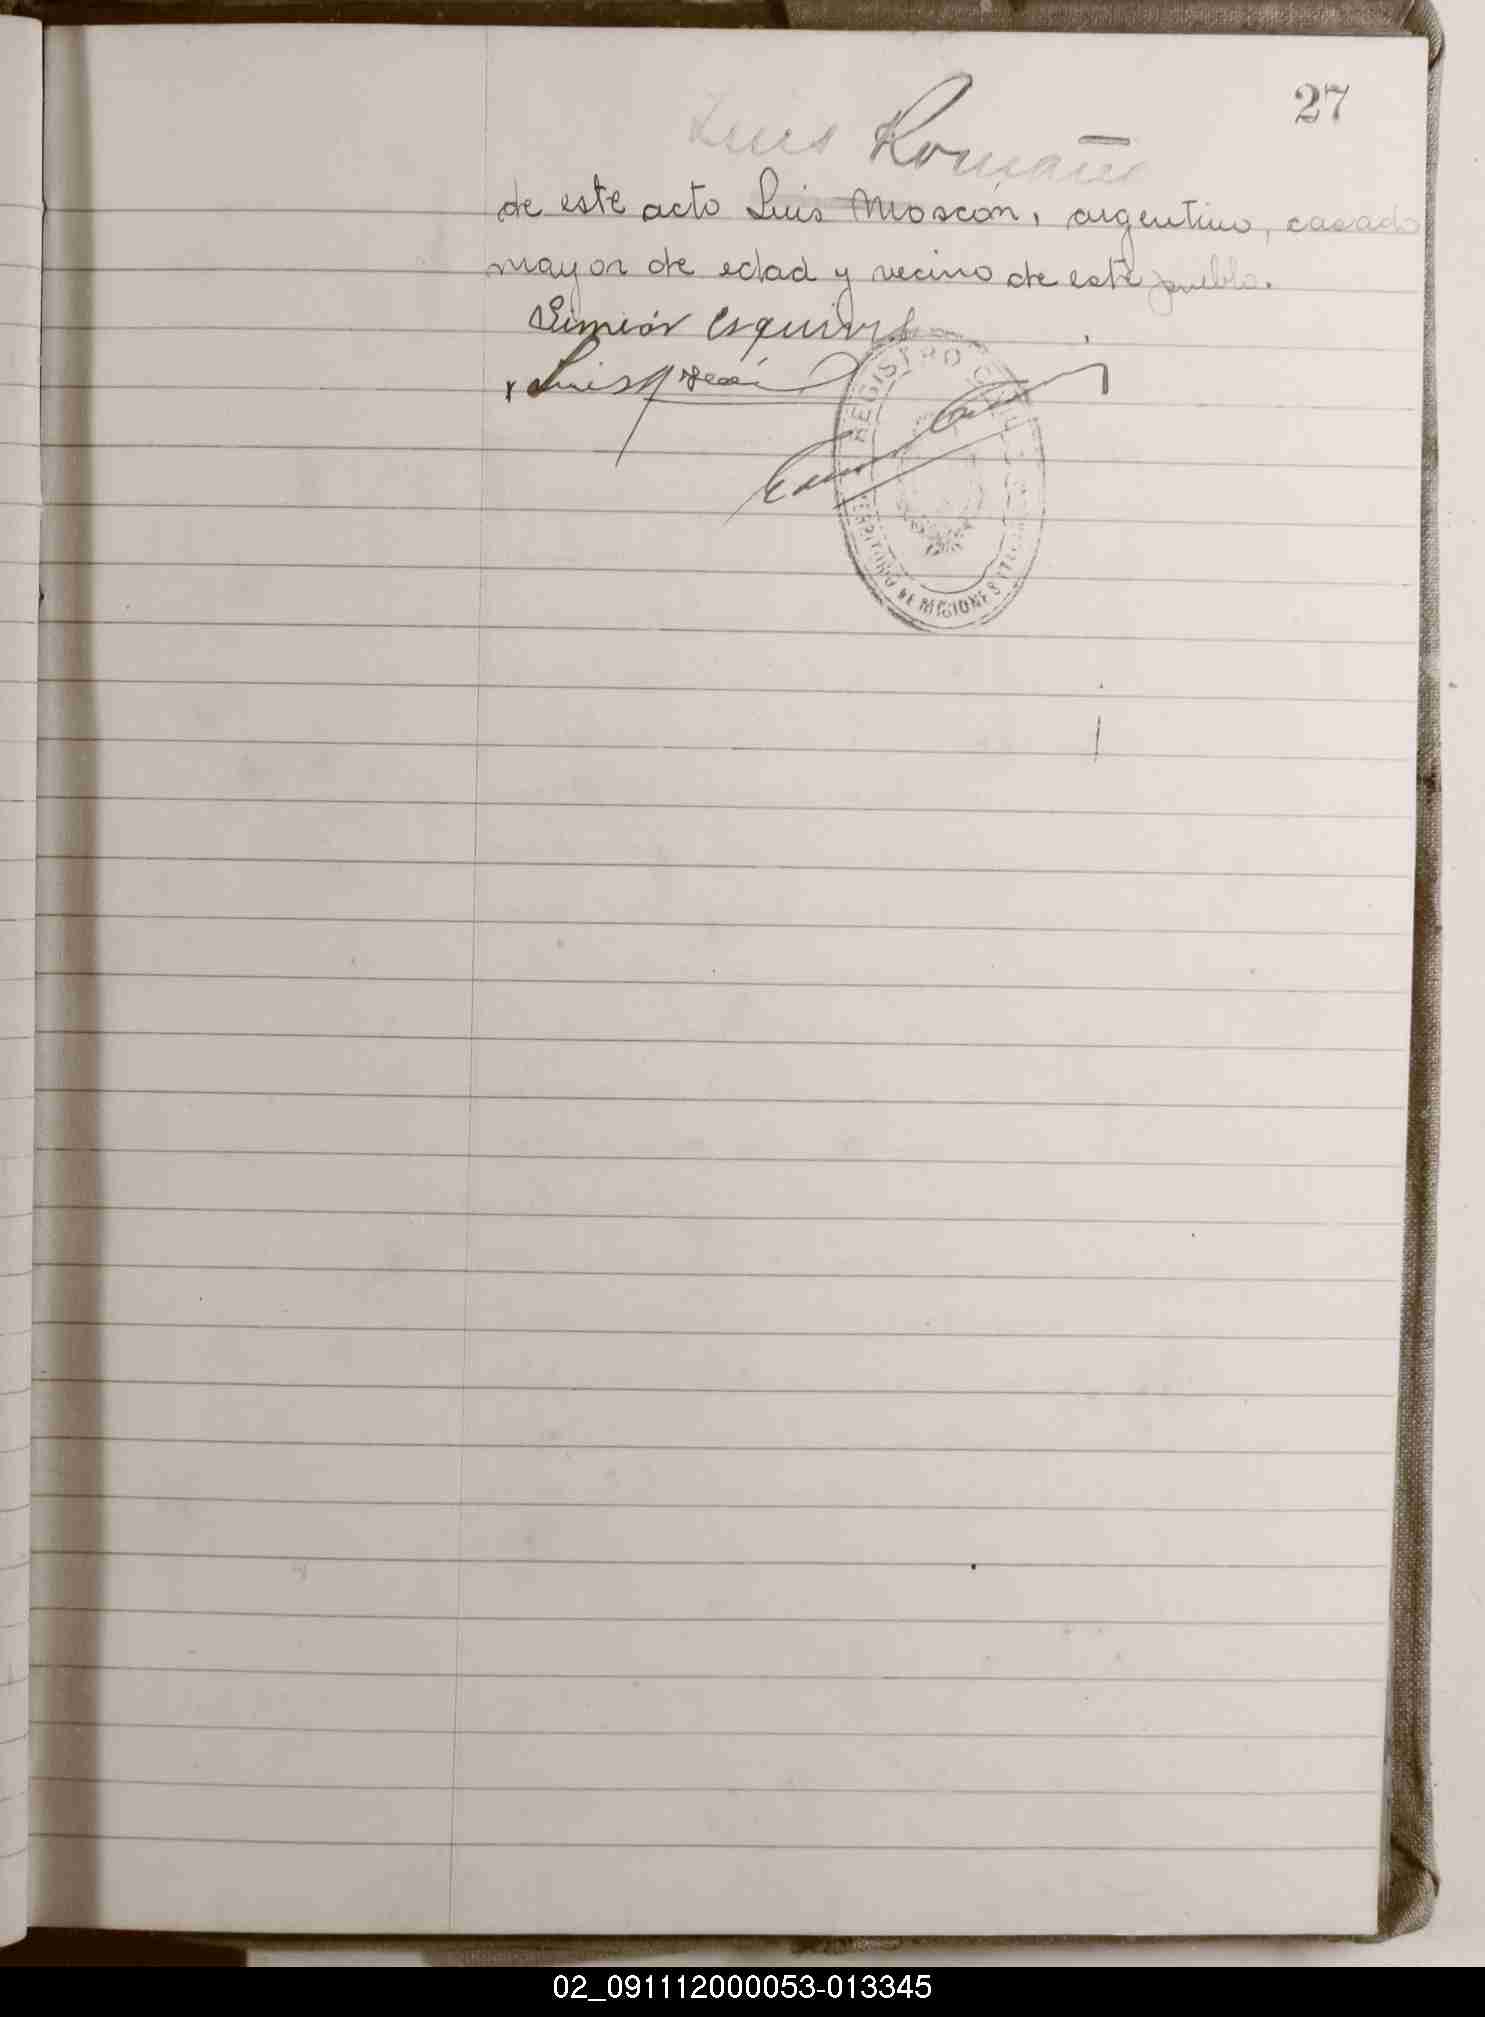 27
Luis Romañ
de este acto Luis Moscón, argentino, casado
mayor de edad y vecino de este pueblo.
Simión Esquivel
Luis Moscón
REGISTRO CIVIL
TERRITORIO DE MISIONES
02_091112000053-013345